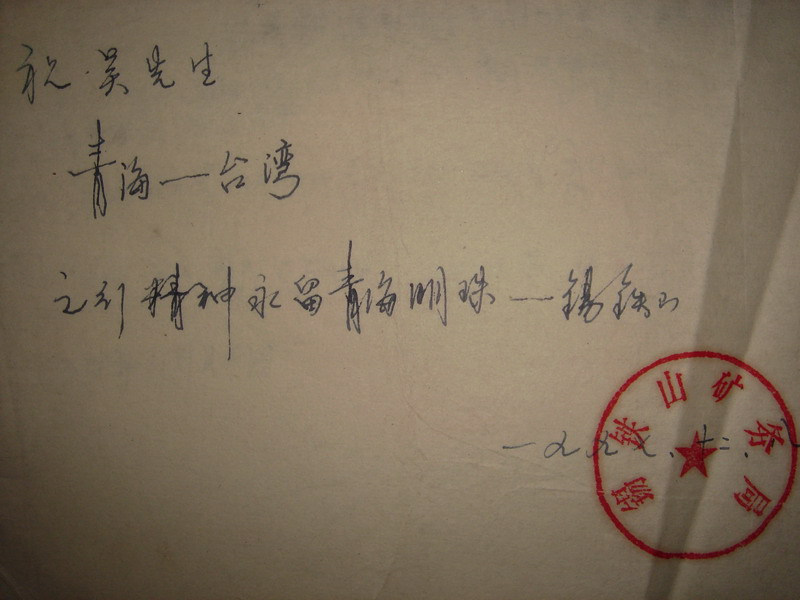 祝吴先生
青海—台湾
之行精神永留青海明珠—锡铁山
一九九八、十二、
锡铁山矿务局